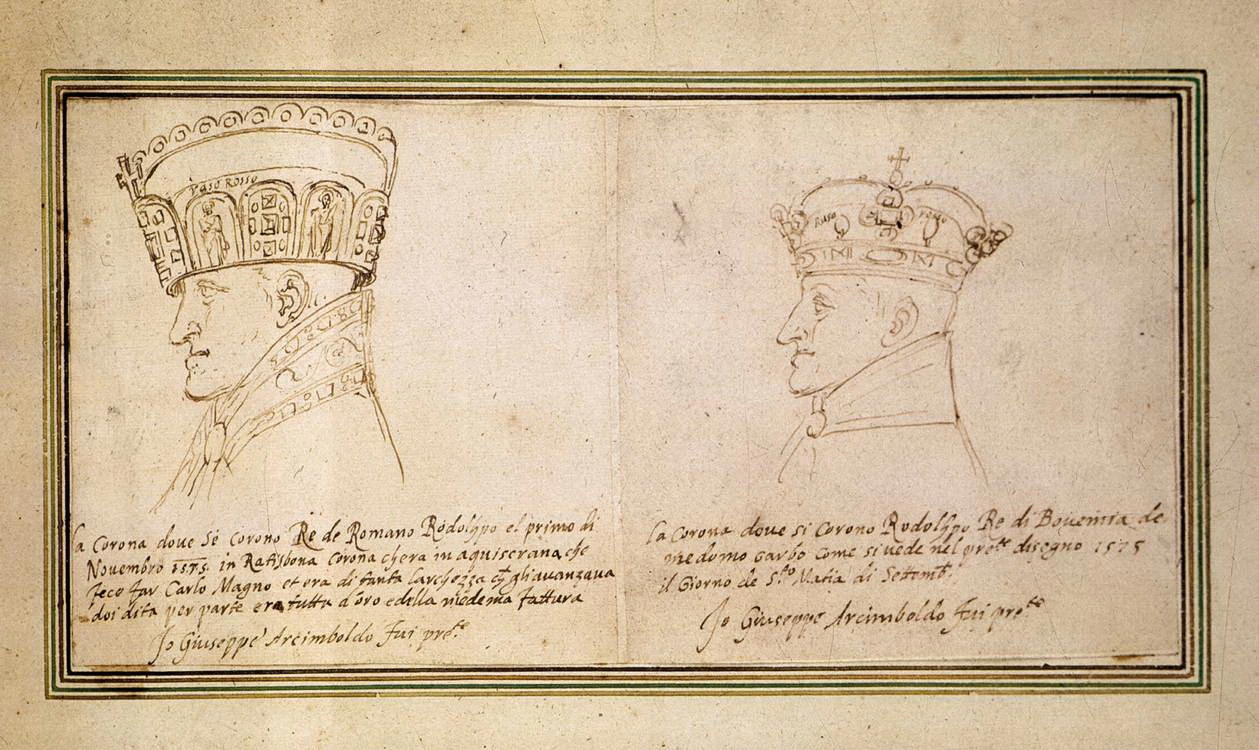 Raso Rosso
La Corona doue Sé Corono Re de Romano Rodolfo el primo di
Novembro 1575. in Ratisbona Corona ch'era in aquisgrana che
fece far Carlo Magno et era di tanta larghezza che gli auanzaua
doi dita per parte era tutta d'oro e della medema fattura
Io Giuseppe Arcimboldo fui pre.te
Raso
La Corona doue si Corono Rodolfo Re di Bouemia de
medemo garbo come si uede nel pres.te disegno 1575
il Giorno de S.to Matia di Settemb.
Io Giuseppe Arcimboldo fui pre.te